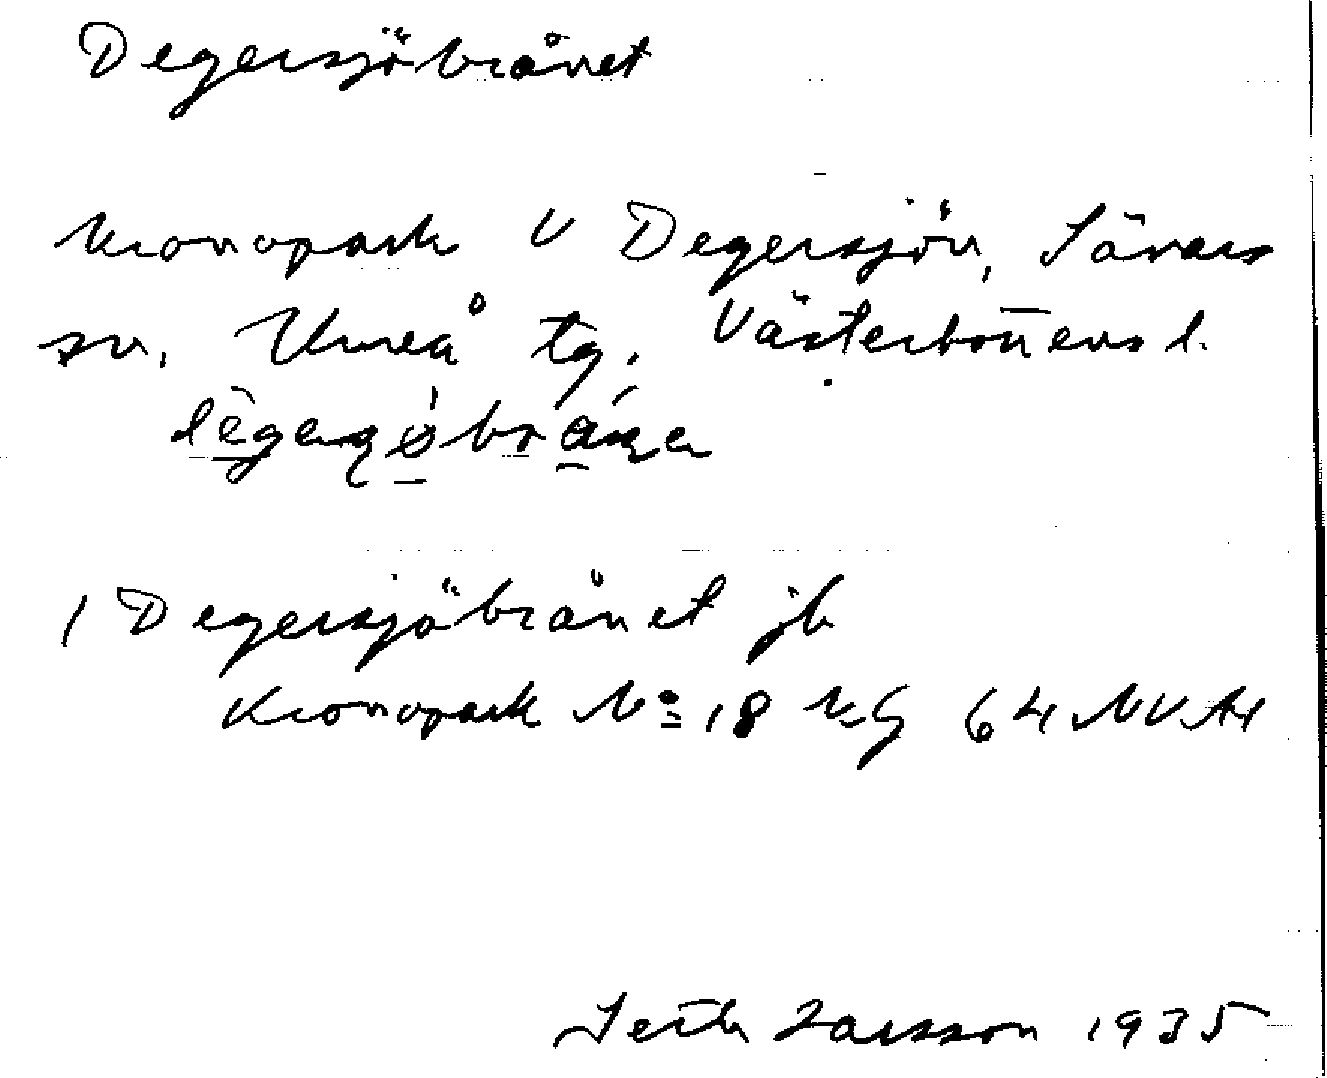 Degersjöbrånet
Kronopark V Degersjön, Sävars
sn, Umeå tg. Västerbottens l.
1 Degersjöbrånet jb
Kronopark No 18 64 NV
Larsson 1935